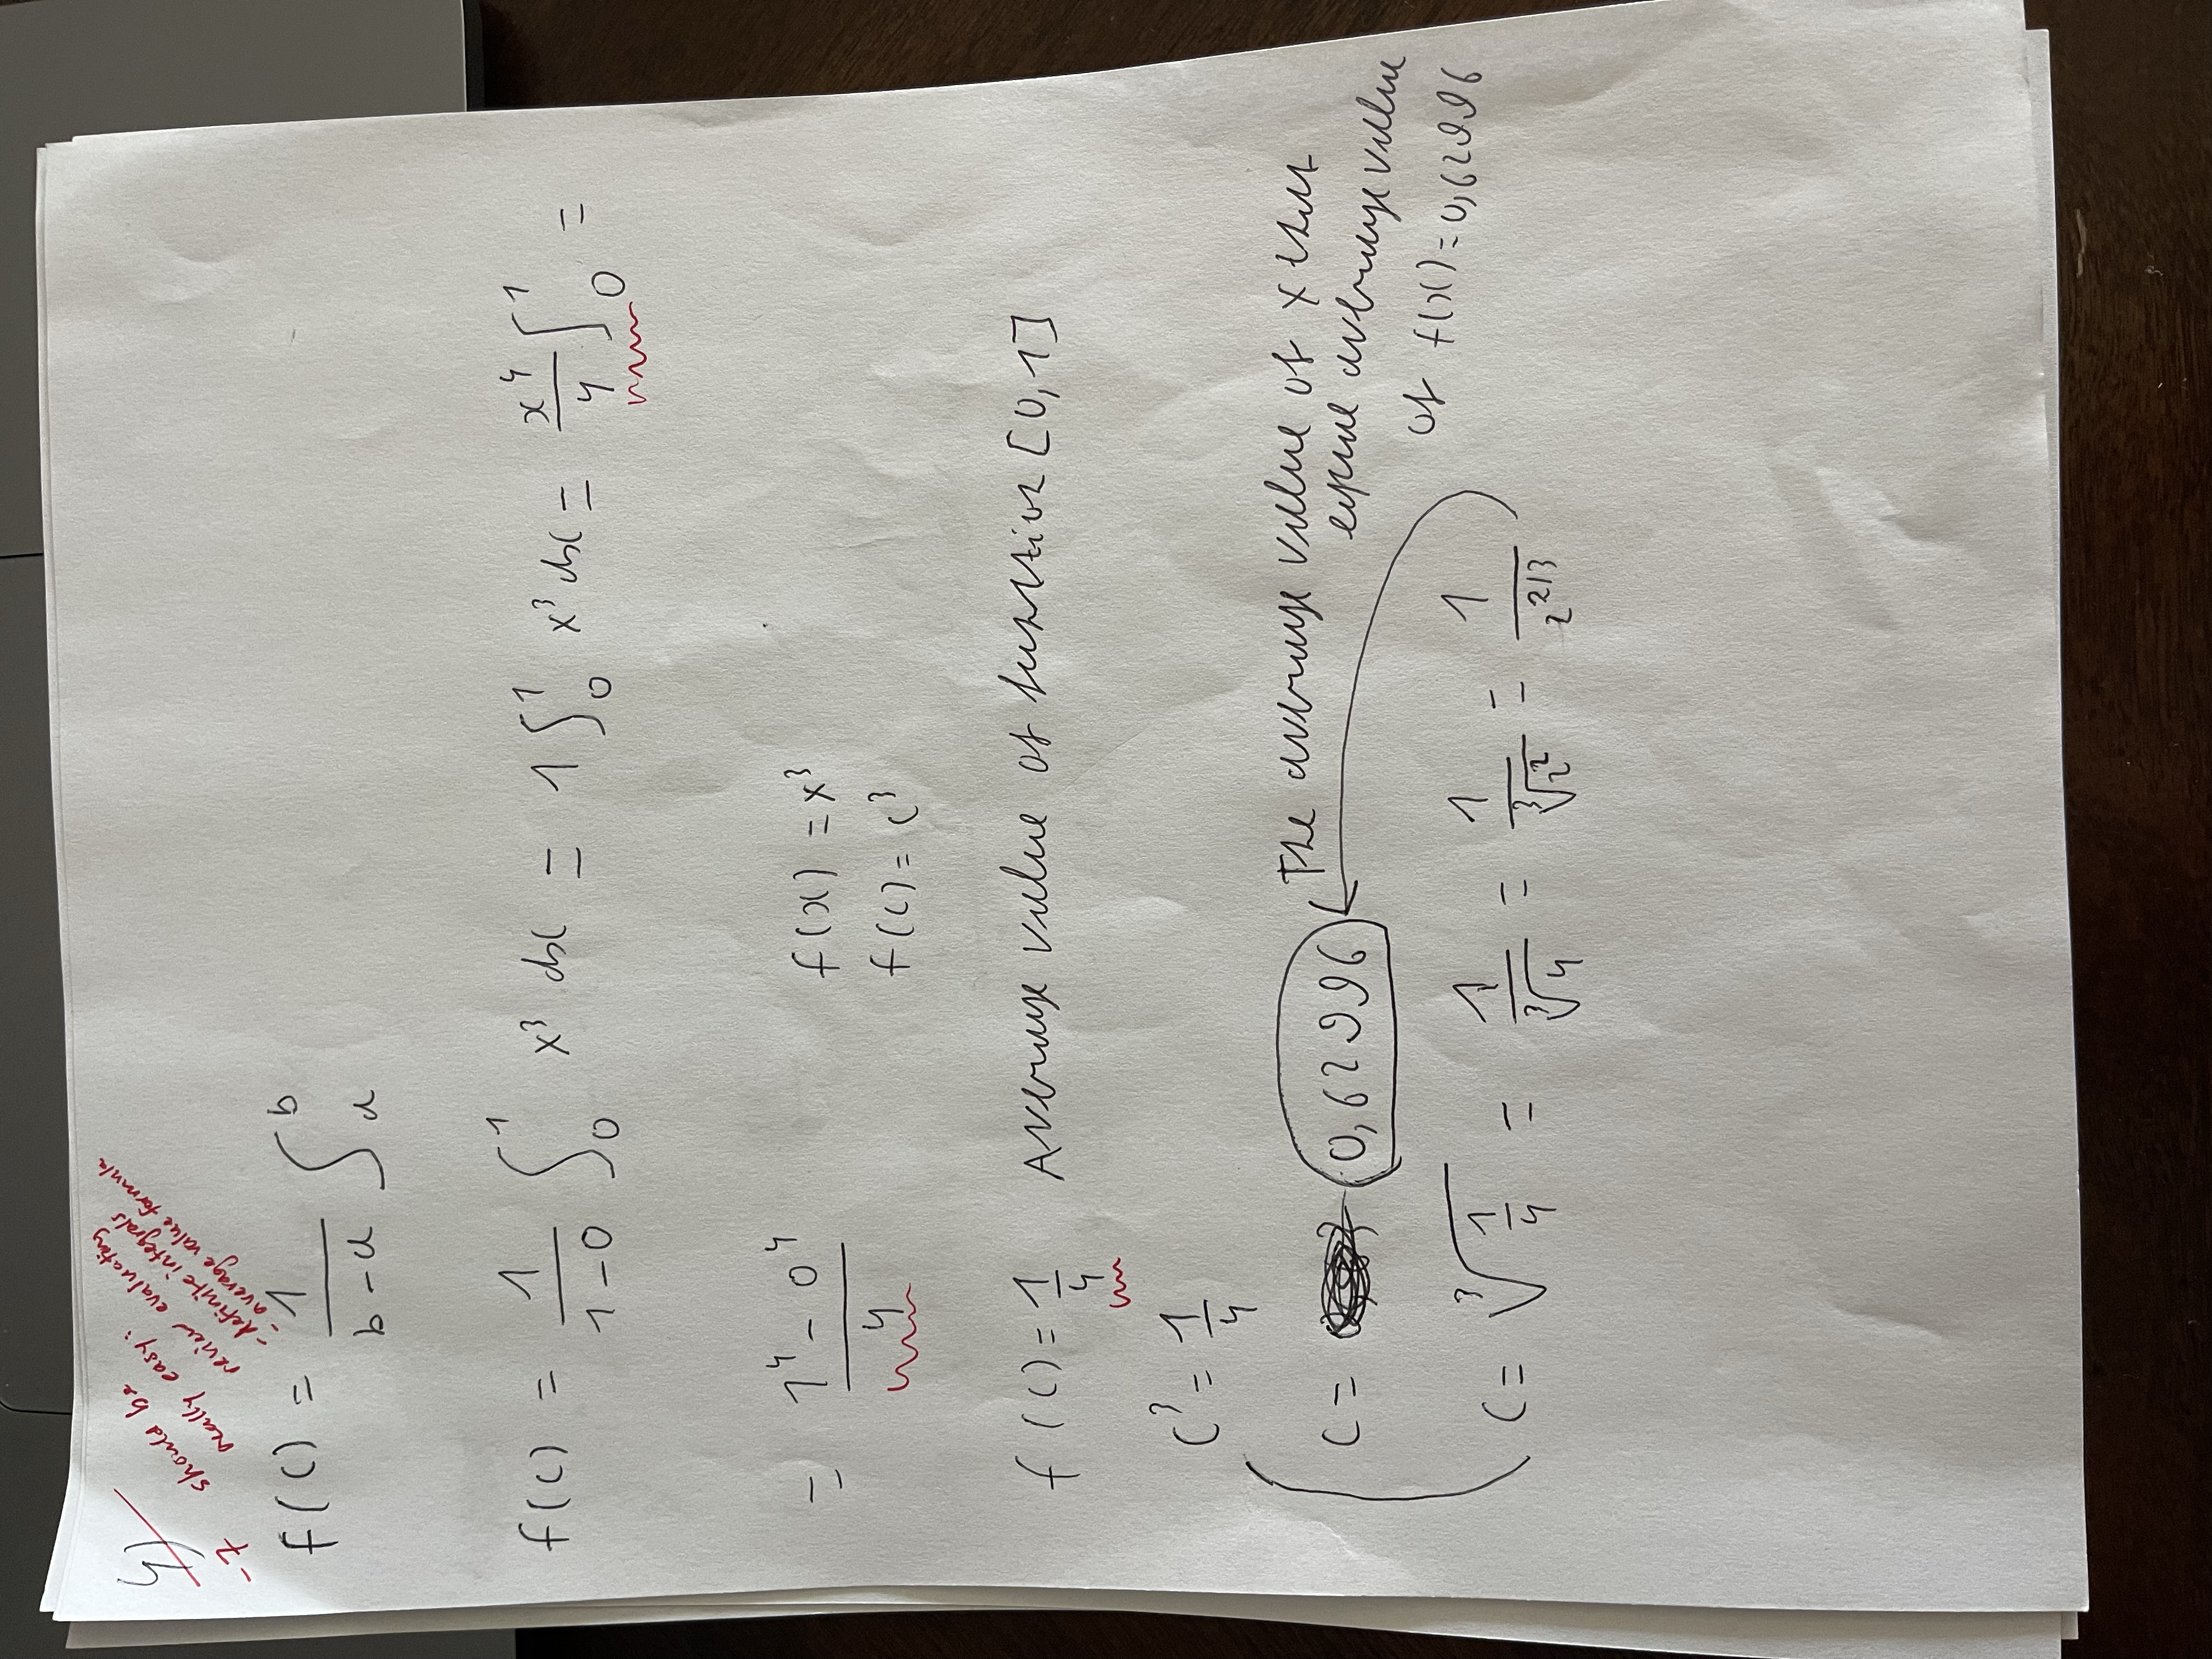 4)
-2
should be
really easy:
review evaluating
-definite integrals
-average value formula
f(c) = 1/(b-a) ∫_a^b
f(c) = 1/(1-0) ∫_0^1 x³ dx = 1 ∫_0^1 x³ dx = x⁴/4 ∫_0^1 =
= (1⁴ - 0⁴)/4
f(x) = x³
f(c) = c³
f(c) = 1/4 Average value of function [0,1]
c³ = 1/4
c = 0,62996 The average value of x that
equal average value
of f(x) = 0,62996
c = ∛(1/4) = 1/∛4 = 1/∛2² = 1/2^(2/3)